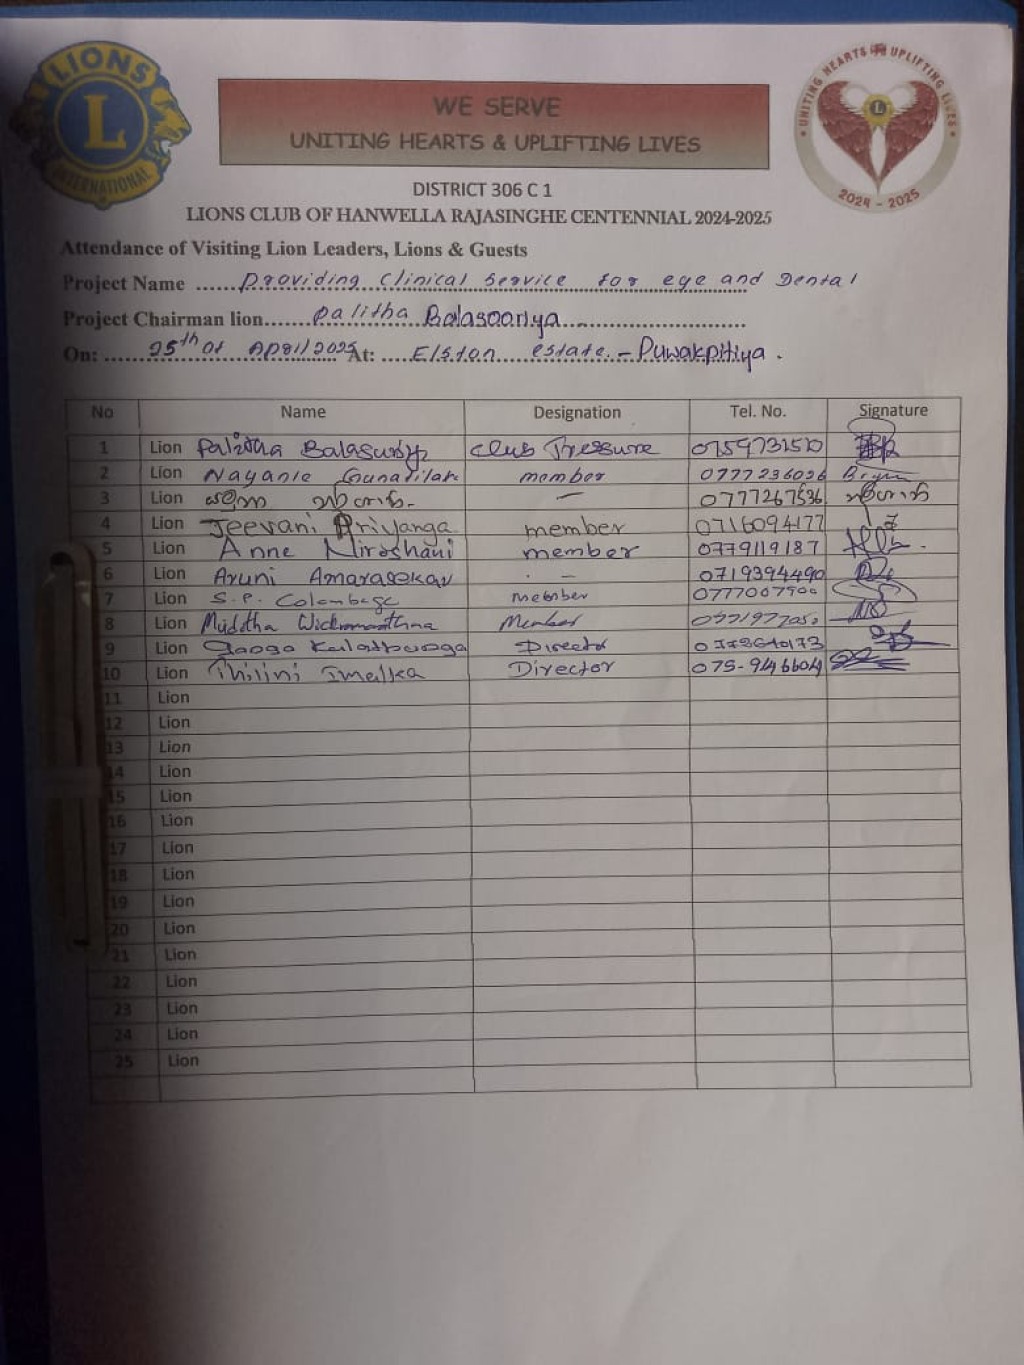 LIONS
L
INTERNATIONAL
WE SERVE
UNITING HEARTS & UPLIFTING LIVES
UNITING HEARTS UPLIFTING LIVES
L
2024 - 2025
DISTRICT 306 C 1
LIONS CLUB OF HANWELLA RAJASINGHE CENTENNIAL 2024-2025
Attendance of Visiting Lion Leaders, Lions & Guests
Project Name ...... Providing Clinical Service for eye and Dental
Project Chairman lion....... Palitha Balasooriya
On: 25th Of April 2025 At: Elston estate - Puwakpitiya.
No Name Designation Tel. No. Signature
1 Lion Palitha Club Tressure
2 Lion Nayanie member 0777236026
3 Lion — 0777267536
4 Lion Jeevani Priyanga member 0716094177
5 Lion Anne Niroshani member 0779119187
6 Lion Aruni - — 0719394490
7 Lion S.P. Colombage member
8 Lion Member
9 Lion Director
10 Lion Thilini Imalka Director 075-946604
11 Lion
12 Lion
13 Lion
14 Lion
15 Lion
16 Lion
17 Lion
18 Lion
19 Lion
20 Lion
21 Lion
22 Lion
23 Lion
24 Lion
25 Lion